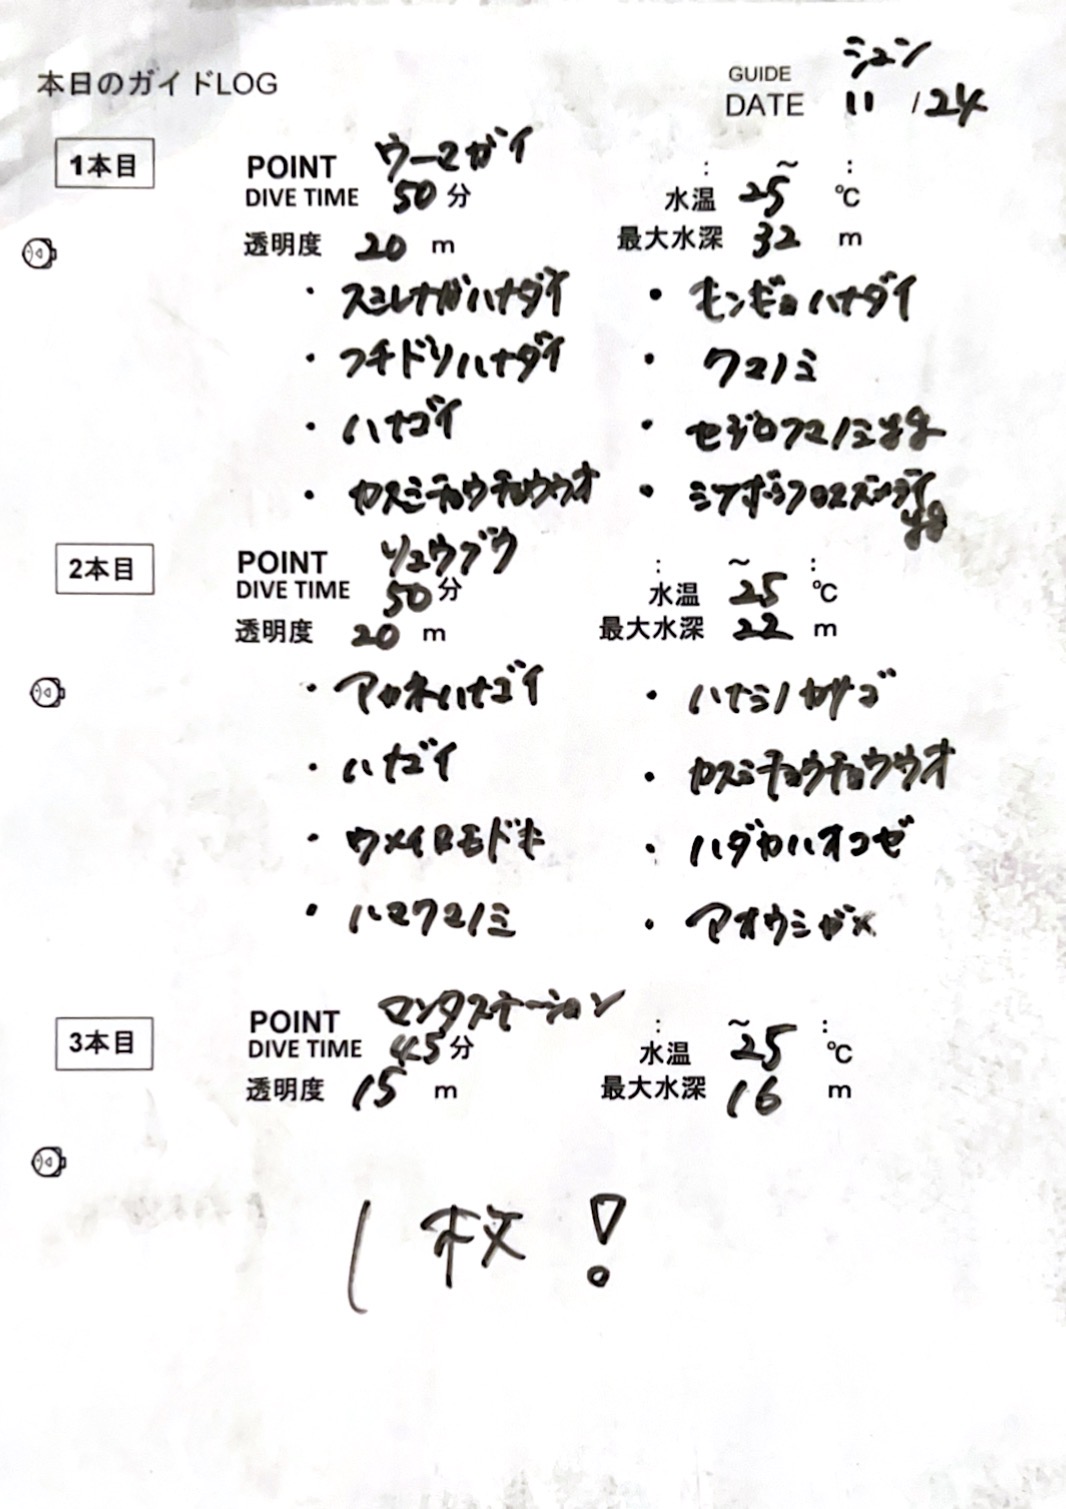 本日のガイドLOG
GUIDE ジュン
DATE 11 / 24
1本目
POINT ウーマガイ : ~ :
DIVE TIME 50 分 水温 25 ℃
透明度 20 m 最大水深 32 m
・スミレナガハナダイ ・キンギョハナダイ
・フチドリハナダイ ・クマノミ
・ハナゴイ ・セジロクマノミyg
・カスミチョウチョウウオ ・ミツボシクロスズメダイ
yg
2本目
POINT リュウグウ : ~ :
DIVE TIME 50 分 水温 25 ℃
透明度 20 m 最大水深 22 m
・アカネハナゴイ ・ハナミノカサゴ
・ハナゴイ ・カスミチョウチョウウオ
・ウメイロモドキ ・ハダカハオコゼ
・ハマクマノミ ・アオウミガメ
3本目
POINT マンタステーション : ~ :
DIVE TIME 45 分 水温 25 ℃
透明度 15 m 最大水深 16 m
1枚!